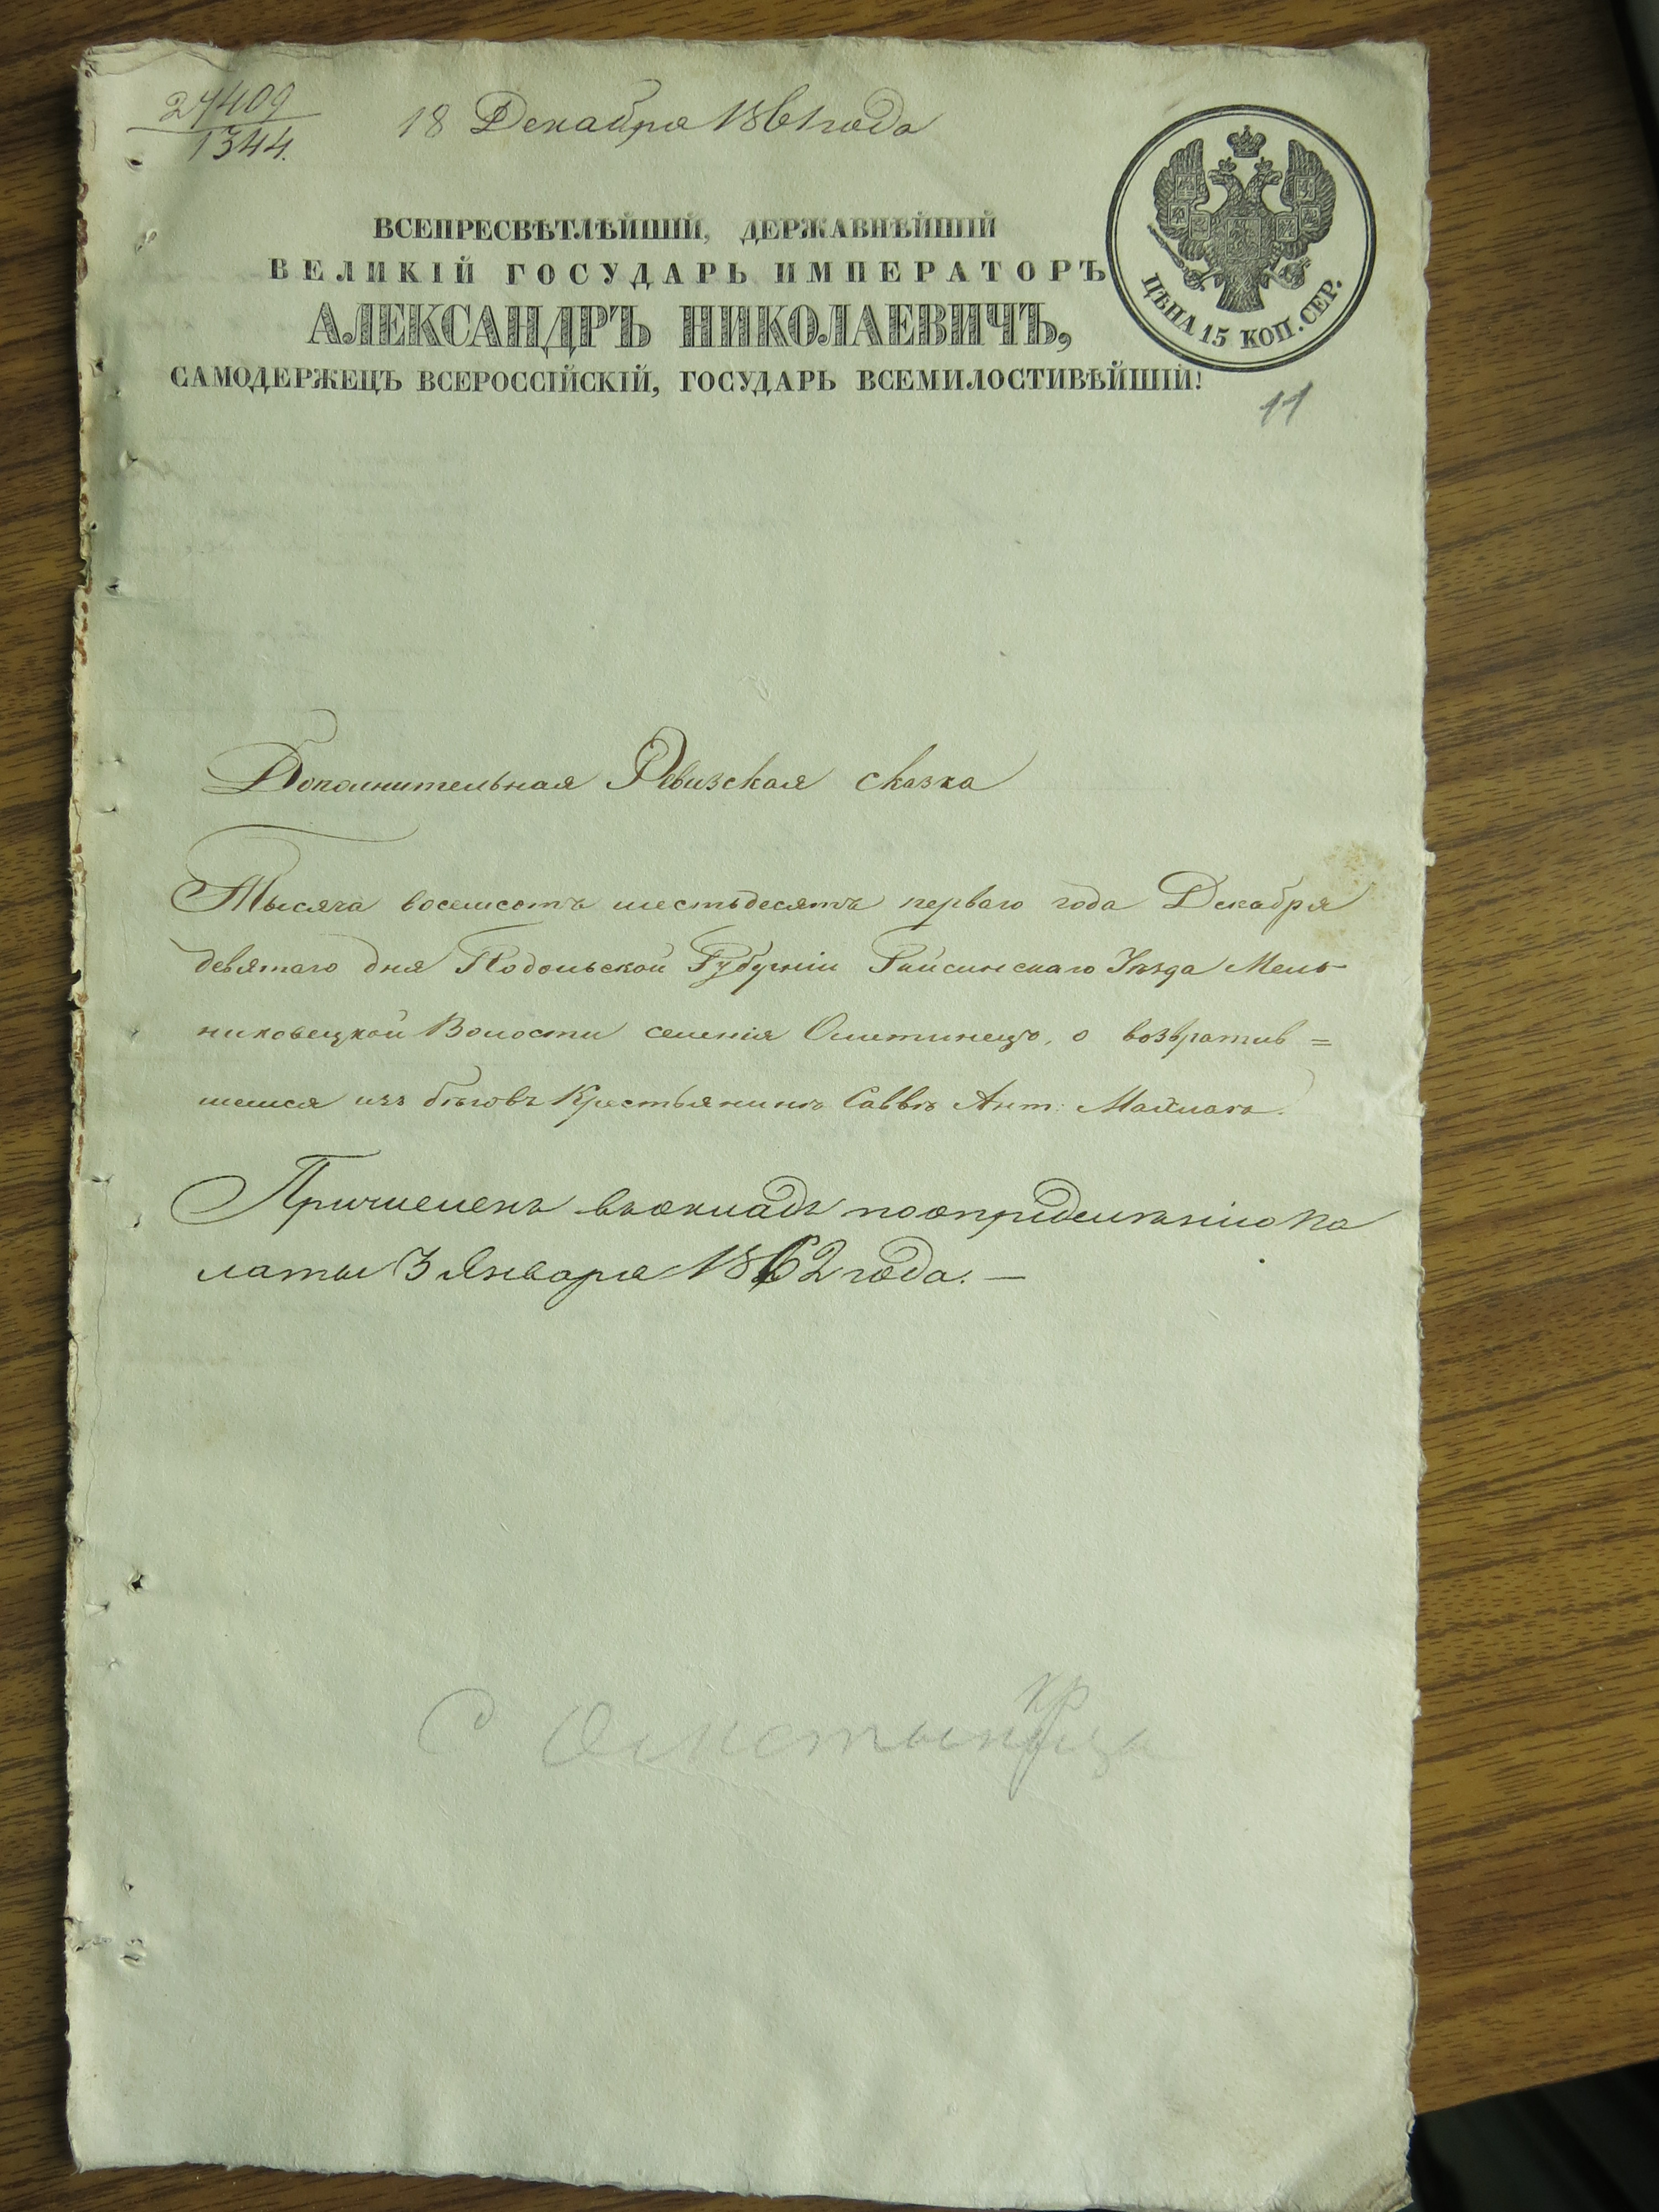 27409
1344.
18 Декабря 1861 года
ВСЕПРЕСВѢТЛѢЙШІЙ, ДЕРЖАВНѢЙШІЙ
ВЕЛИКІЙ ГОСУДАРЬ ИМПЕРАТОРЪ
АЛЕКСАНДРЪ НИКОЛАЕВИЧЪ,
САМОДЕРЖЕЦЪ ВСЕРОССІЙСКІЙ, ГОСУДАРЬ ВСЕМИЛОСТИВѢЙШІЙ!
ЦѢНА 15 КОП. СЕР.
11
Дополнительная Ревизская сказка
Тысяча восемсотъ шестьдесятъ перваго года Декабря
девятаго дня Подольской Губерніи Гайсинскаго Уѣзда Мель-
никовецкой Волости селенія Омитинецъ, о возвратив=
шемся изъ бѣговъ Крестьянинѣ Саввѣ Ант:
Причисленъ въ окладъ по опредѣленію Па
латы 3 Января 1862 года. —
С